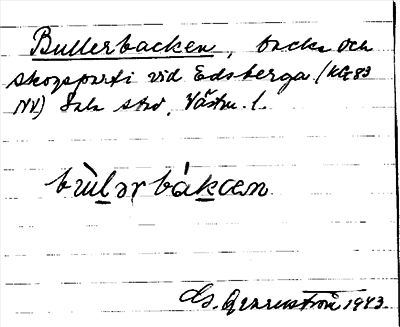 Bullerbacken, backe och
skogsparti vid Edsberga (KG 83
NV) Sala stad, Västm. l.
bùl̲ər bák̲aen
1943